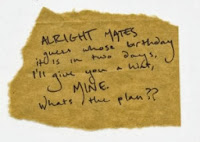 ALRIGHT MATES
guess whose birthday
it is in two days,
I'll give you a hint,
MINE.
Whats the plan??